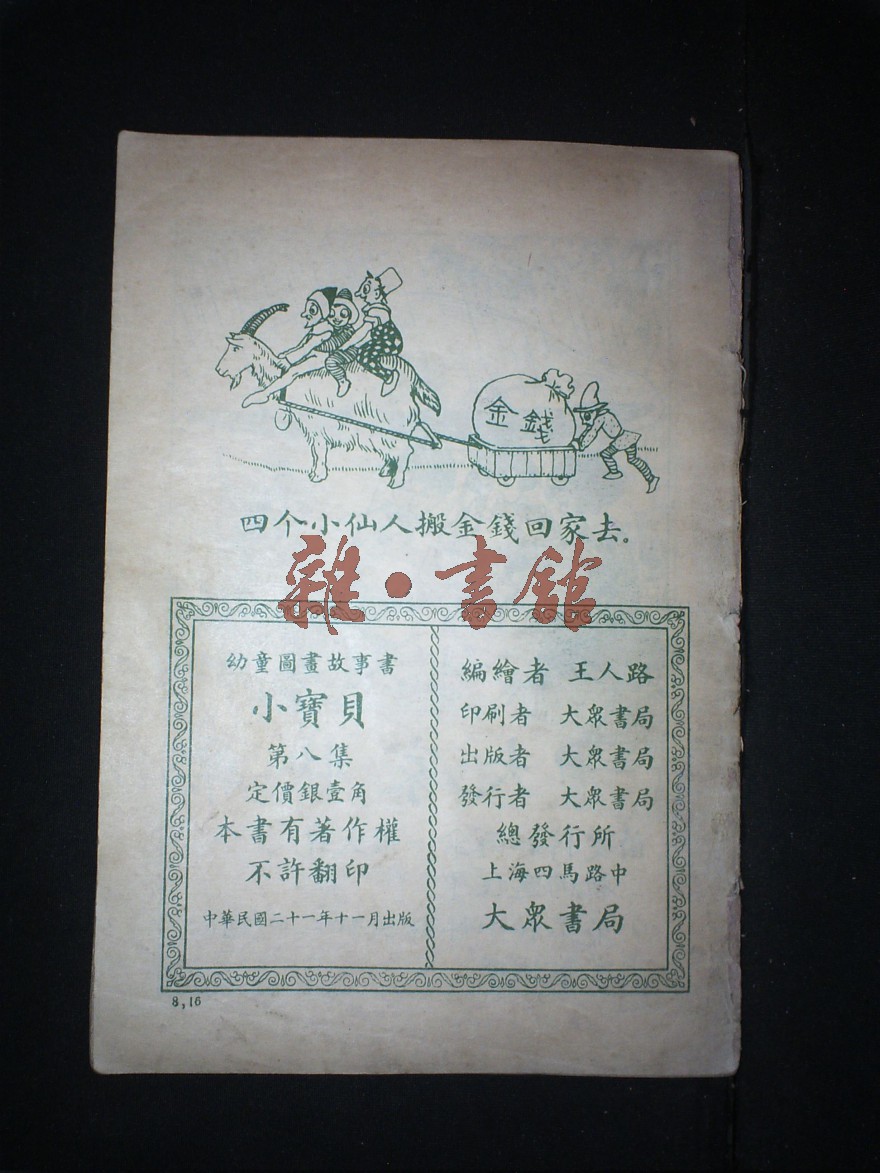 金錢
四个小仙人搬金錢回家去.
雜·書館
幼童圖畫故事書
小寶貝
第八集
定價銀壹角
本書有著作權
不許翻印
中華民國二十一年十一月出版
編繪者 王人路
印刷者 大眾書局
出版者 大眾書局
發行者 大眾書局
總發行所
上海四馬路中
大眾書局
8,16